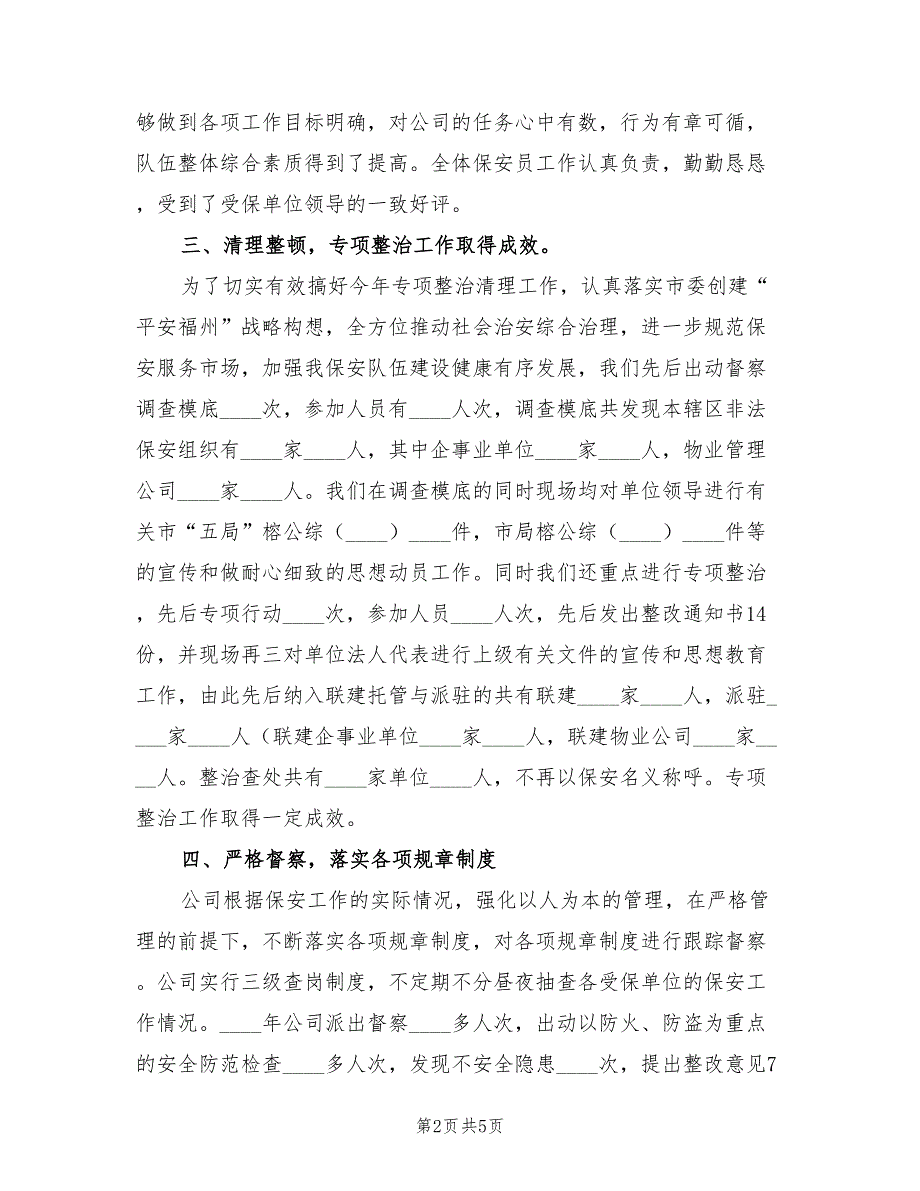 够做到各项工作目标明确，对公司的任务心中有数，行为有章可循，
队伍整体综合素质得到了提高。全体保安员工作认真负责，勤勤恳恳
，受到了受保单位领导的一致好评。
三、清理整顿，专项整治工作取得成效。
为了切实有效搞好今年专项整治清理工作，认真落实市委创建“
平安福州”战略构想，全方位推动社会治安综合治理，进一步规范保
安服务市场，加强我保安队伍建设健康有序发展，我们先后出动督察
调查模底____次，参加人员有____人次，调查模底共发现本辖区非法
保安组织有____家____人，其中企事业单位____家____人，物业管理
公司____家____人。我们在调查模底的同时现场均对单位领导进行有
关市“五局”榕公综（____）____件，市局榕公综（____）____件等
的宣传和做耐心细致的思想动员工作。同时我们还重点进行专项整治
，先后专项行动____次，参加人员____人次，先后发出整改通知书14
份，并现场再三对单位法人代表进行上级有关文件的宣传和思想教育
工作，由此先后纳入联建托管与派驻的共有联建____家____人，派驻_
___家____人（联建企事业单位____家____人，联建物业公司____家__
__人。整治查处共有____家单位____人，不再以保安名义称呼。专项
整治工作取得一定成效。
四、严格督察，落实各项规章制度
公司根据保安工作的实际情况，强化以人为本的管理，在严格管
理的前提下，不断落实各项规章制度，对各项规章制度进行跟踪督察
。公司实行三级查岗制度，不定期不分昼夜抽查各受保单位的保安工
作情况。____年公司派出督察____多人次，出动以防火、防盗为重点
的安全防范检查____多人次，发现不安全隐患____次，提出整改意见7
第2页共5页